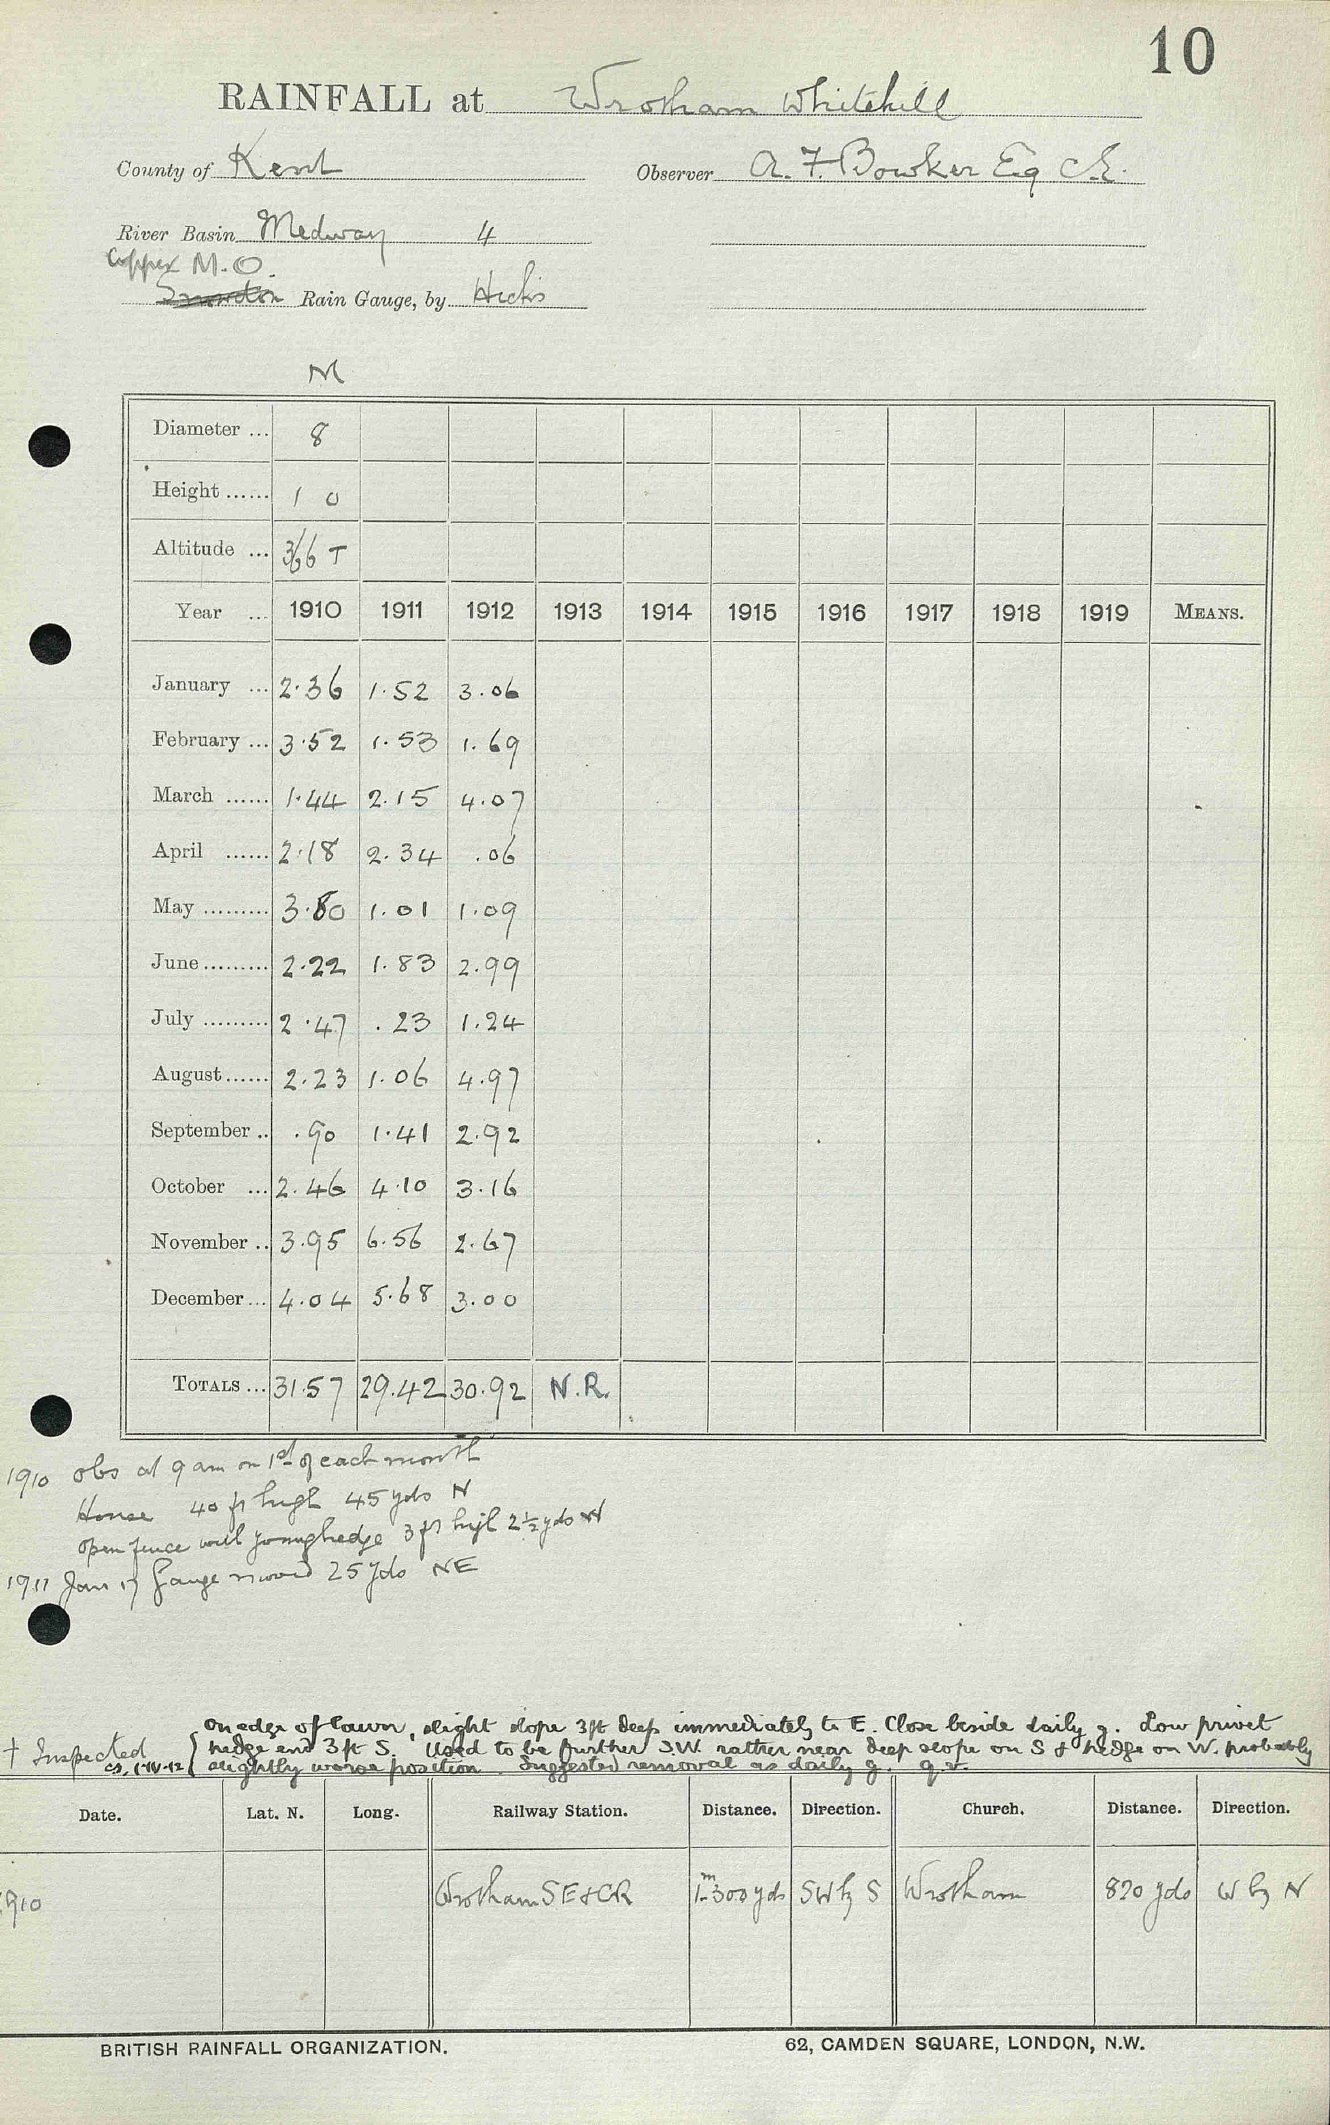 10
RAINFALL at Wrotham Whitehill
County of Kent Observer A. F. Bowker Esq C.E.
River Basin Medway 4
Copper M.O.
Snowdon Rain Gauge, by Hicks
M
Diameter ... 8
Height ...... 1 0
Altitude ... 366 T
Year ... 1910 1911 1912 1913 1914 1915 1916 1917 1918 1919 MEANS.
January ... 2.36 1.52 3.06
February ... 3.52 1.53 1.69
March ...... 1.44 2.15 4.07
April ...... 2.18 2.34 .06
May ......... 3.80 1.01 1.09
June ......... 2.22 1.83 2.99
July ......... 2.47 .23 1.24
August ...... 2.23 1.06 4.97
September .. .90 1.41 2.92
October ... 2.46 4.10 3.16
November .. 3.95 6.56 2.67
December ... 4.04 5.68 3.00
TOTALS ... 31.57 29.42 30.92 N.R.
1910 obs at 9 am on 1st of each month
House 40 ft high 45 yds N
open fence with young hedge 3 ft high 2½ yds W
1911 Jan 17 Gauge moved 25 yds NE
On edge of lawn, slight slope 3ft deep immediately to E. Close beside daily g. Low privet
† Inspected hedge end 3 ft S. Used to be further S.W. rather near deep slope on S & hedge on W. probably
slightly worse position. Suggested removal as daily g. q.v.
Date. Lat. N. Long. Railway Station. Distance. Direction. Church. Distance. Direction.
1910 Wrotham SE&CR 1m 300 yds SW by S Wrotham 820 yds W by N
BRITISH RAINFALL ORGANIZATION. 62, CAMDEN SQUARE, LONDON, N.W.